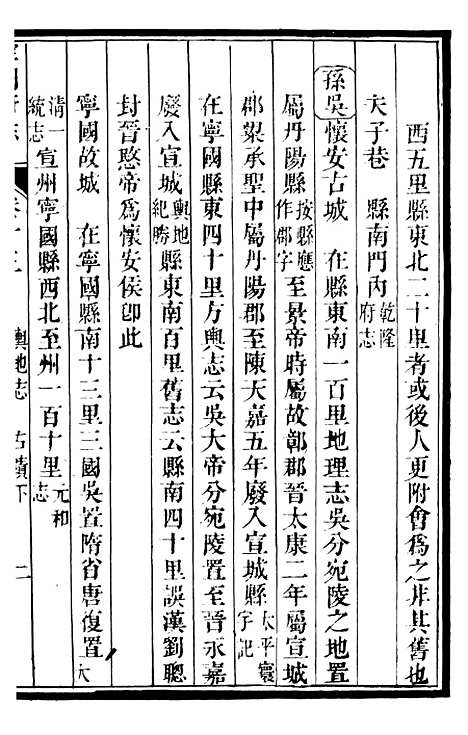 西五里縣東北二十里者或後人更附會爲之非其舊也
夫子巷　縣南門內乾隆府志
孫吳懷安古城　在縣東南一百里地理志吳分宛陵之地置
屬丹陽縣按縣應作郡字至景帝時屬故鄣郡晉太康二年屬宣城
郡梁承聖中屬丹陽郡至陳天嘉五年廢入宣城縣太平寰宇記
在寧國縣東四十里方輿志云吳大帝分宛陵置至晉永嘉
廢入宣城輿地紀勝縣東南百里舊志云縣南四十里誤漢劉聰
封晉愍帝爲懷安侯卽此
寧國故城　在寧國縣南十三里三國吳置隋省唐復置大
清一統志宣州寧國縣西北至州一百十里元和志
卷十三　輿地志　古蹟下　二